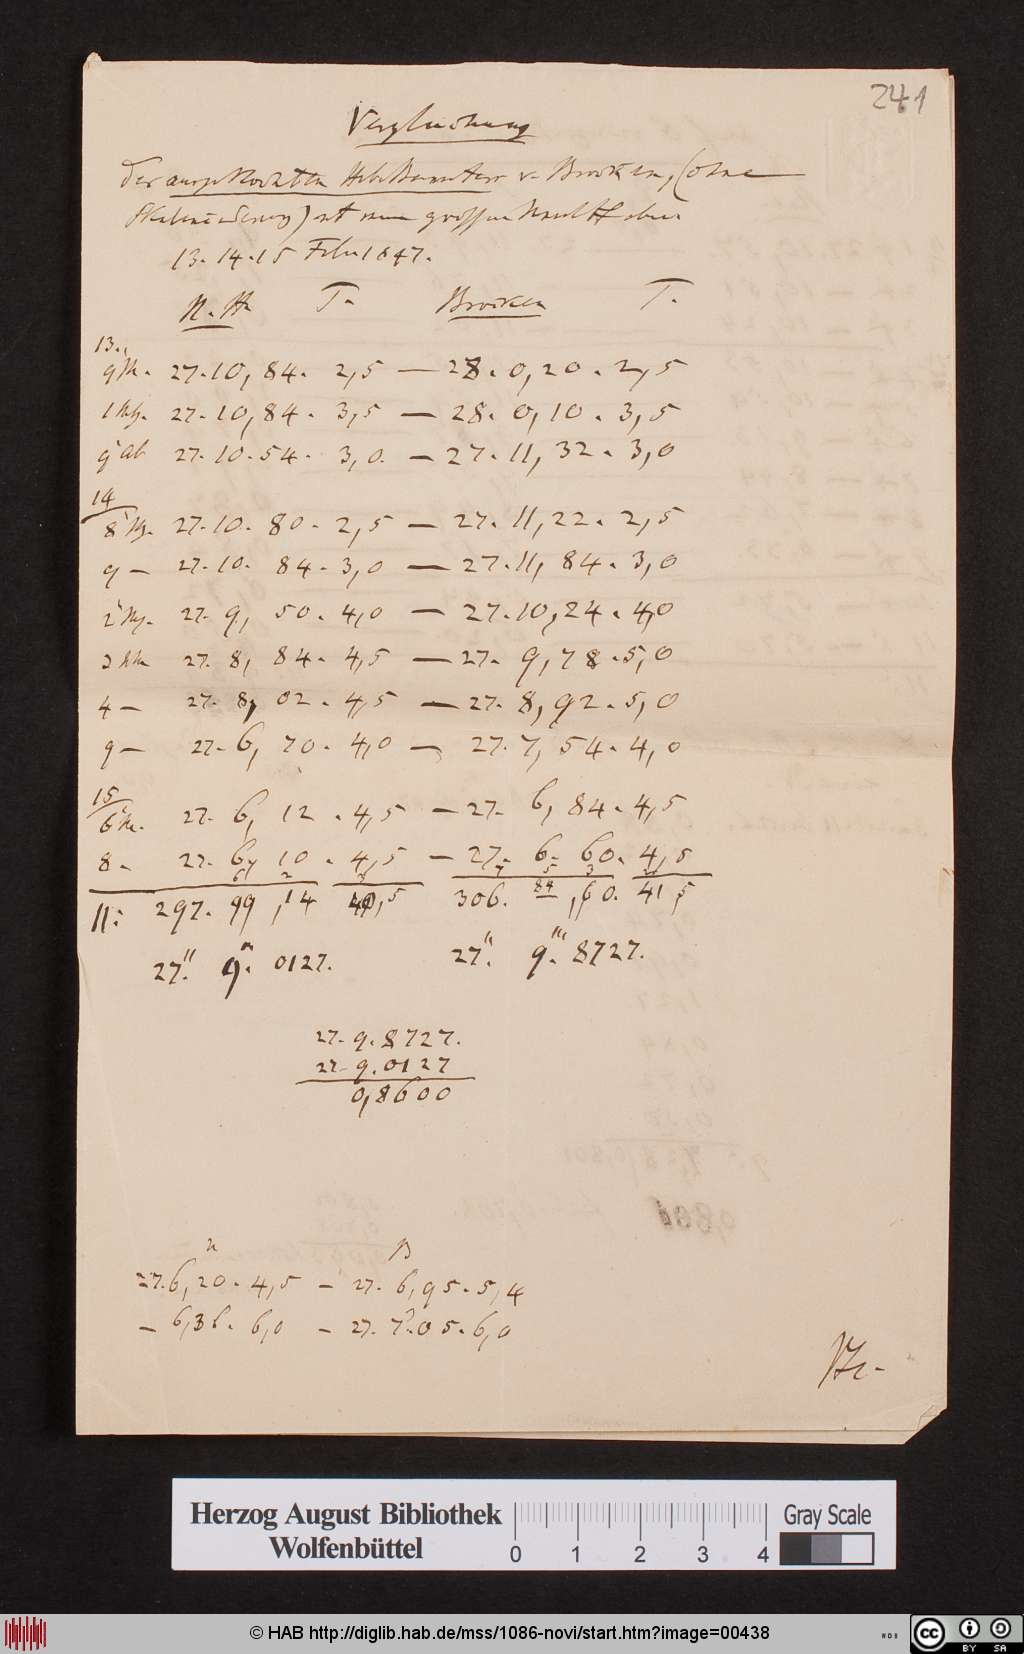 241
Vergleichung
des ausgekochten Heberbarometers v. Brocken, (ohne
13. 14. 15 Febr 1847.
N. H. T. Brocken T.
13.
9 M. 27. 10, 84. 2,5 — 28. 0, 20. 2,5
1 Mg. 27. 10, 84. 3,5 — 28. 0, 10. 3,5
9 ab 27. 10. 54. 3,0. — 27. 11, 32. 3,0
14
8 Mg. 27. 10. 80. 2,5 — 27. 11, 22. 2,5
9 — 27. 10. 84. 3,0 — 27. 11, 84. 3,0
2 Mg. 27. 9, 50. 4,0 — 27. 10, 24. 4,0
27. 8, 84. 4,5 — 27. 9, 78. 5,0
4 — 27. 8, 02. 4,5 — 27. 8, 92. 5,0
9 — 27. 6, 70. 4,0 — 27. 7, 54. 4,0
15
6 M. 27. 6, 12. 4,5 — 27. 6, 84. 4,5
8 - 27. 6, 10. 4,5 — 27. 6. 60. 4,5
11: 297. 99, 14 40,5 306. 84, 60. 41,5
27." 9."' 0127. 27." 9."' 8727.
27. 9. 8727.
27. 9. 0127
0,8600
N B
27. 6, 20. 4,5 — 27. 6, 95. 5,4
— 6,36. 6,0 — 27. 7. 05. 6,0
Herzog August Bibliothek
Wolfenbüttel
0 1 2 3 4
Gray Scale
© HAB http://diglib.hab.de/mss/1086-novi/start.htm?image=00438
WDB
CC BY SA